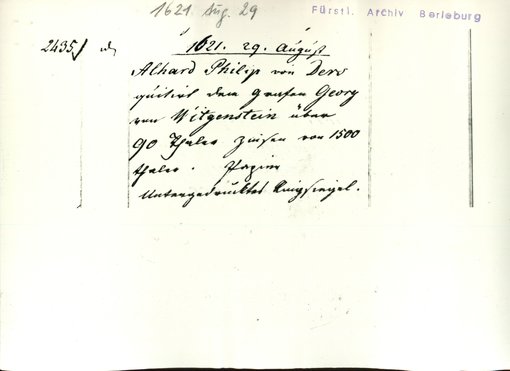 1621 Aug. 29
Fürstl. Archiv Berleburg
2435
1621. 29. August
Alhard Philip von Ders
quitirt dem Grafen Georg
von Witgenstein über
90 Thaler Zinsen von 1500
Thaler. Papier
Untergedrucktes Ringsiegel.